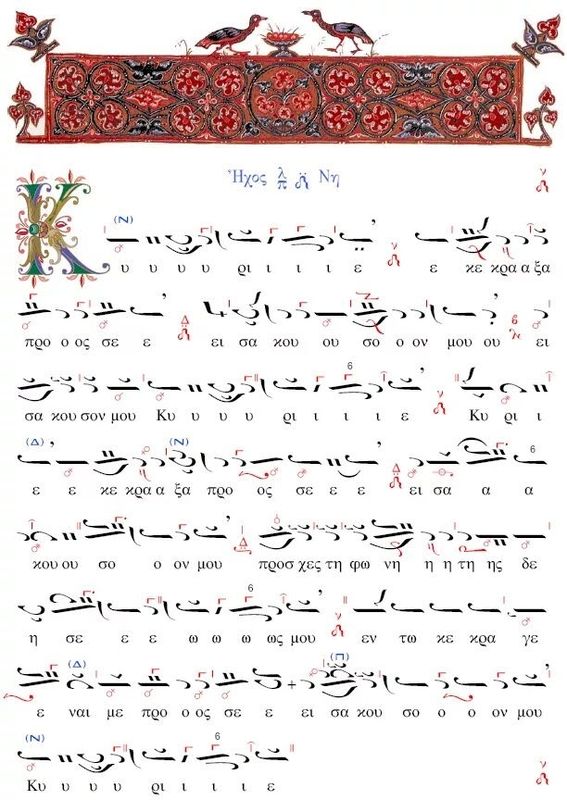 Ἦχος λ π Νη
(Ν)
Κ υ υ υ υ ρι ι ι ε ε κε κρα α α ξα
προ ο ος σε ε ει σα κου ου σο ο ον μου ου ει
σα κου σον μου Κυ υ υ υ ρι ι ι ι ε Κυ ρι ι
(Δ) (Ν)
ε ε κε κρα α ξα προ ος σε ε ε ει σα α α
κου ου σο ο ον μου προσ χες τη φω νη η η τη ης δε
η σε ε ε ω ω ω ως μου εν τω κε κρα γε
(Δ) (Π)
ε ναι με προ ο ος σε ε ει σα κου σο ο ο ον μου
(Ν)
Κυ υ υ υ ρι ι ι ε